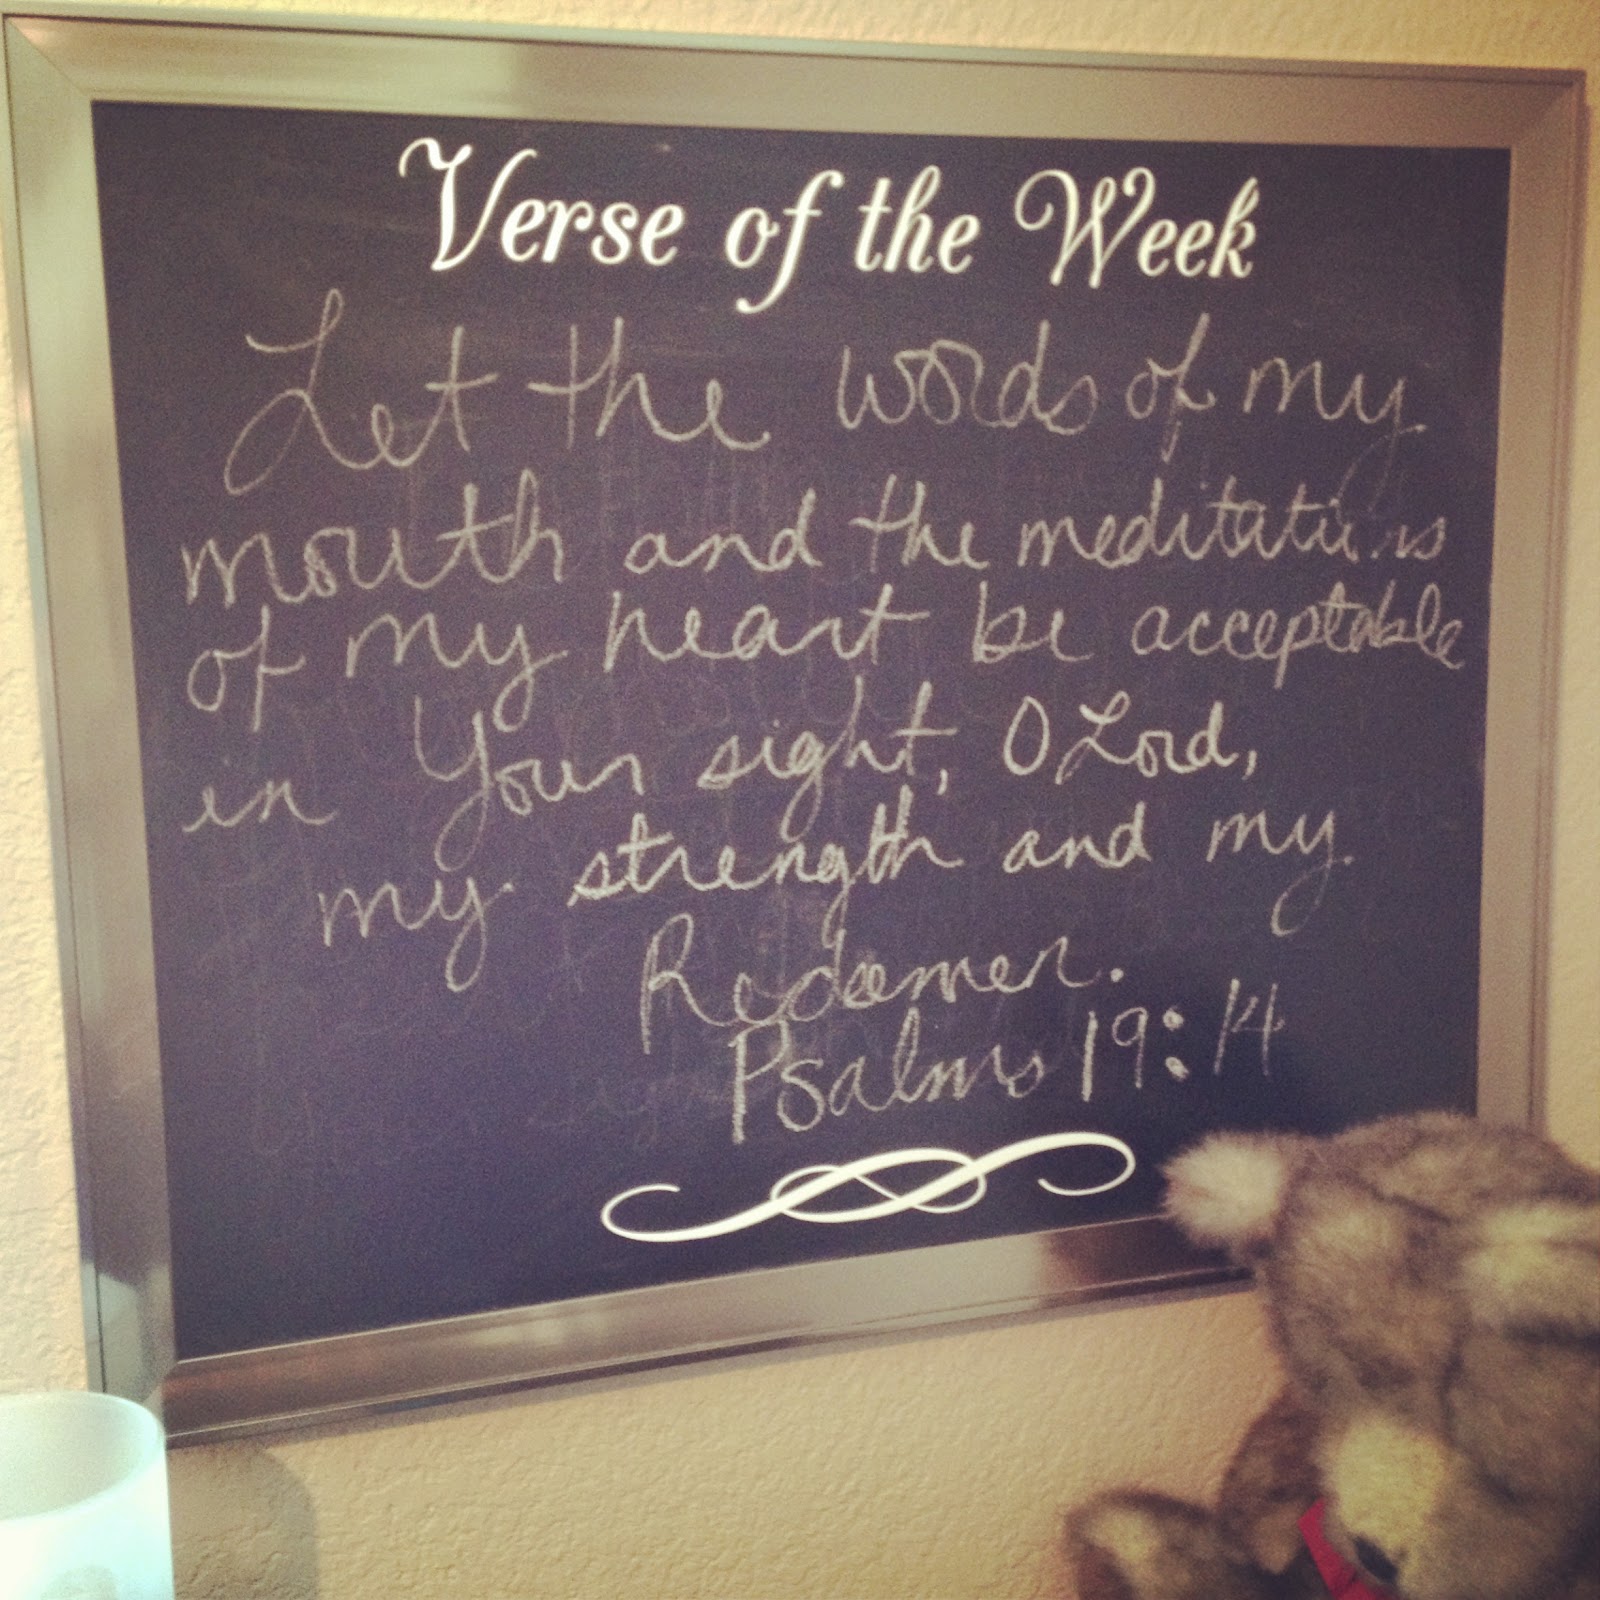 Verse of the Week
Let the words of my
mouth and the meditations
of my heart be acceptable
in Your sight, O Lord,
my strength and my
Redeemer.
Psalms 19:14